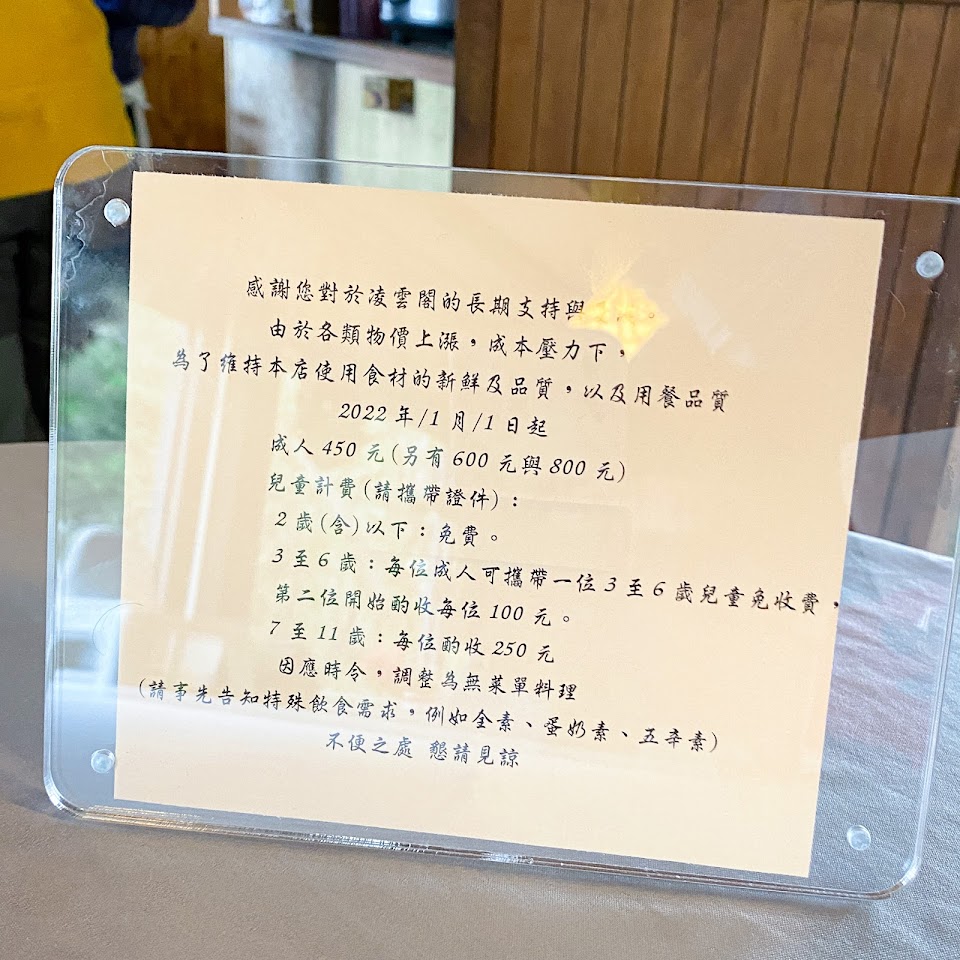 感謝您對於凌雲閣的長期支持與
由於各類物價上漲，成本壓力下，
為了維持本店使用食材的新鮮及品質，以及用餐品質
2022 年/1 月/1 日起
成人 450 元(另有 600 元與 800 元)
兒童計費(請攜帶證件)：
2 歲(含)以下：免費。
3 至 6 歲：每位成人可攜帶一位 3 至 6 歲兒童免收費，
第二位開始酌收每位 100 元。
7 至 11 歲：每位酌收 250 元
因應時令，調整為無菜單料理
(請事先告知特殊飲食需求，例如全素、蛋奶素、五辛素)
不便之處 懇請見諒